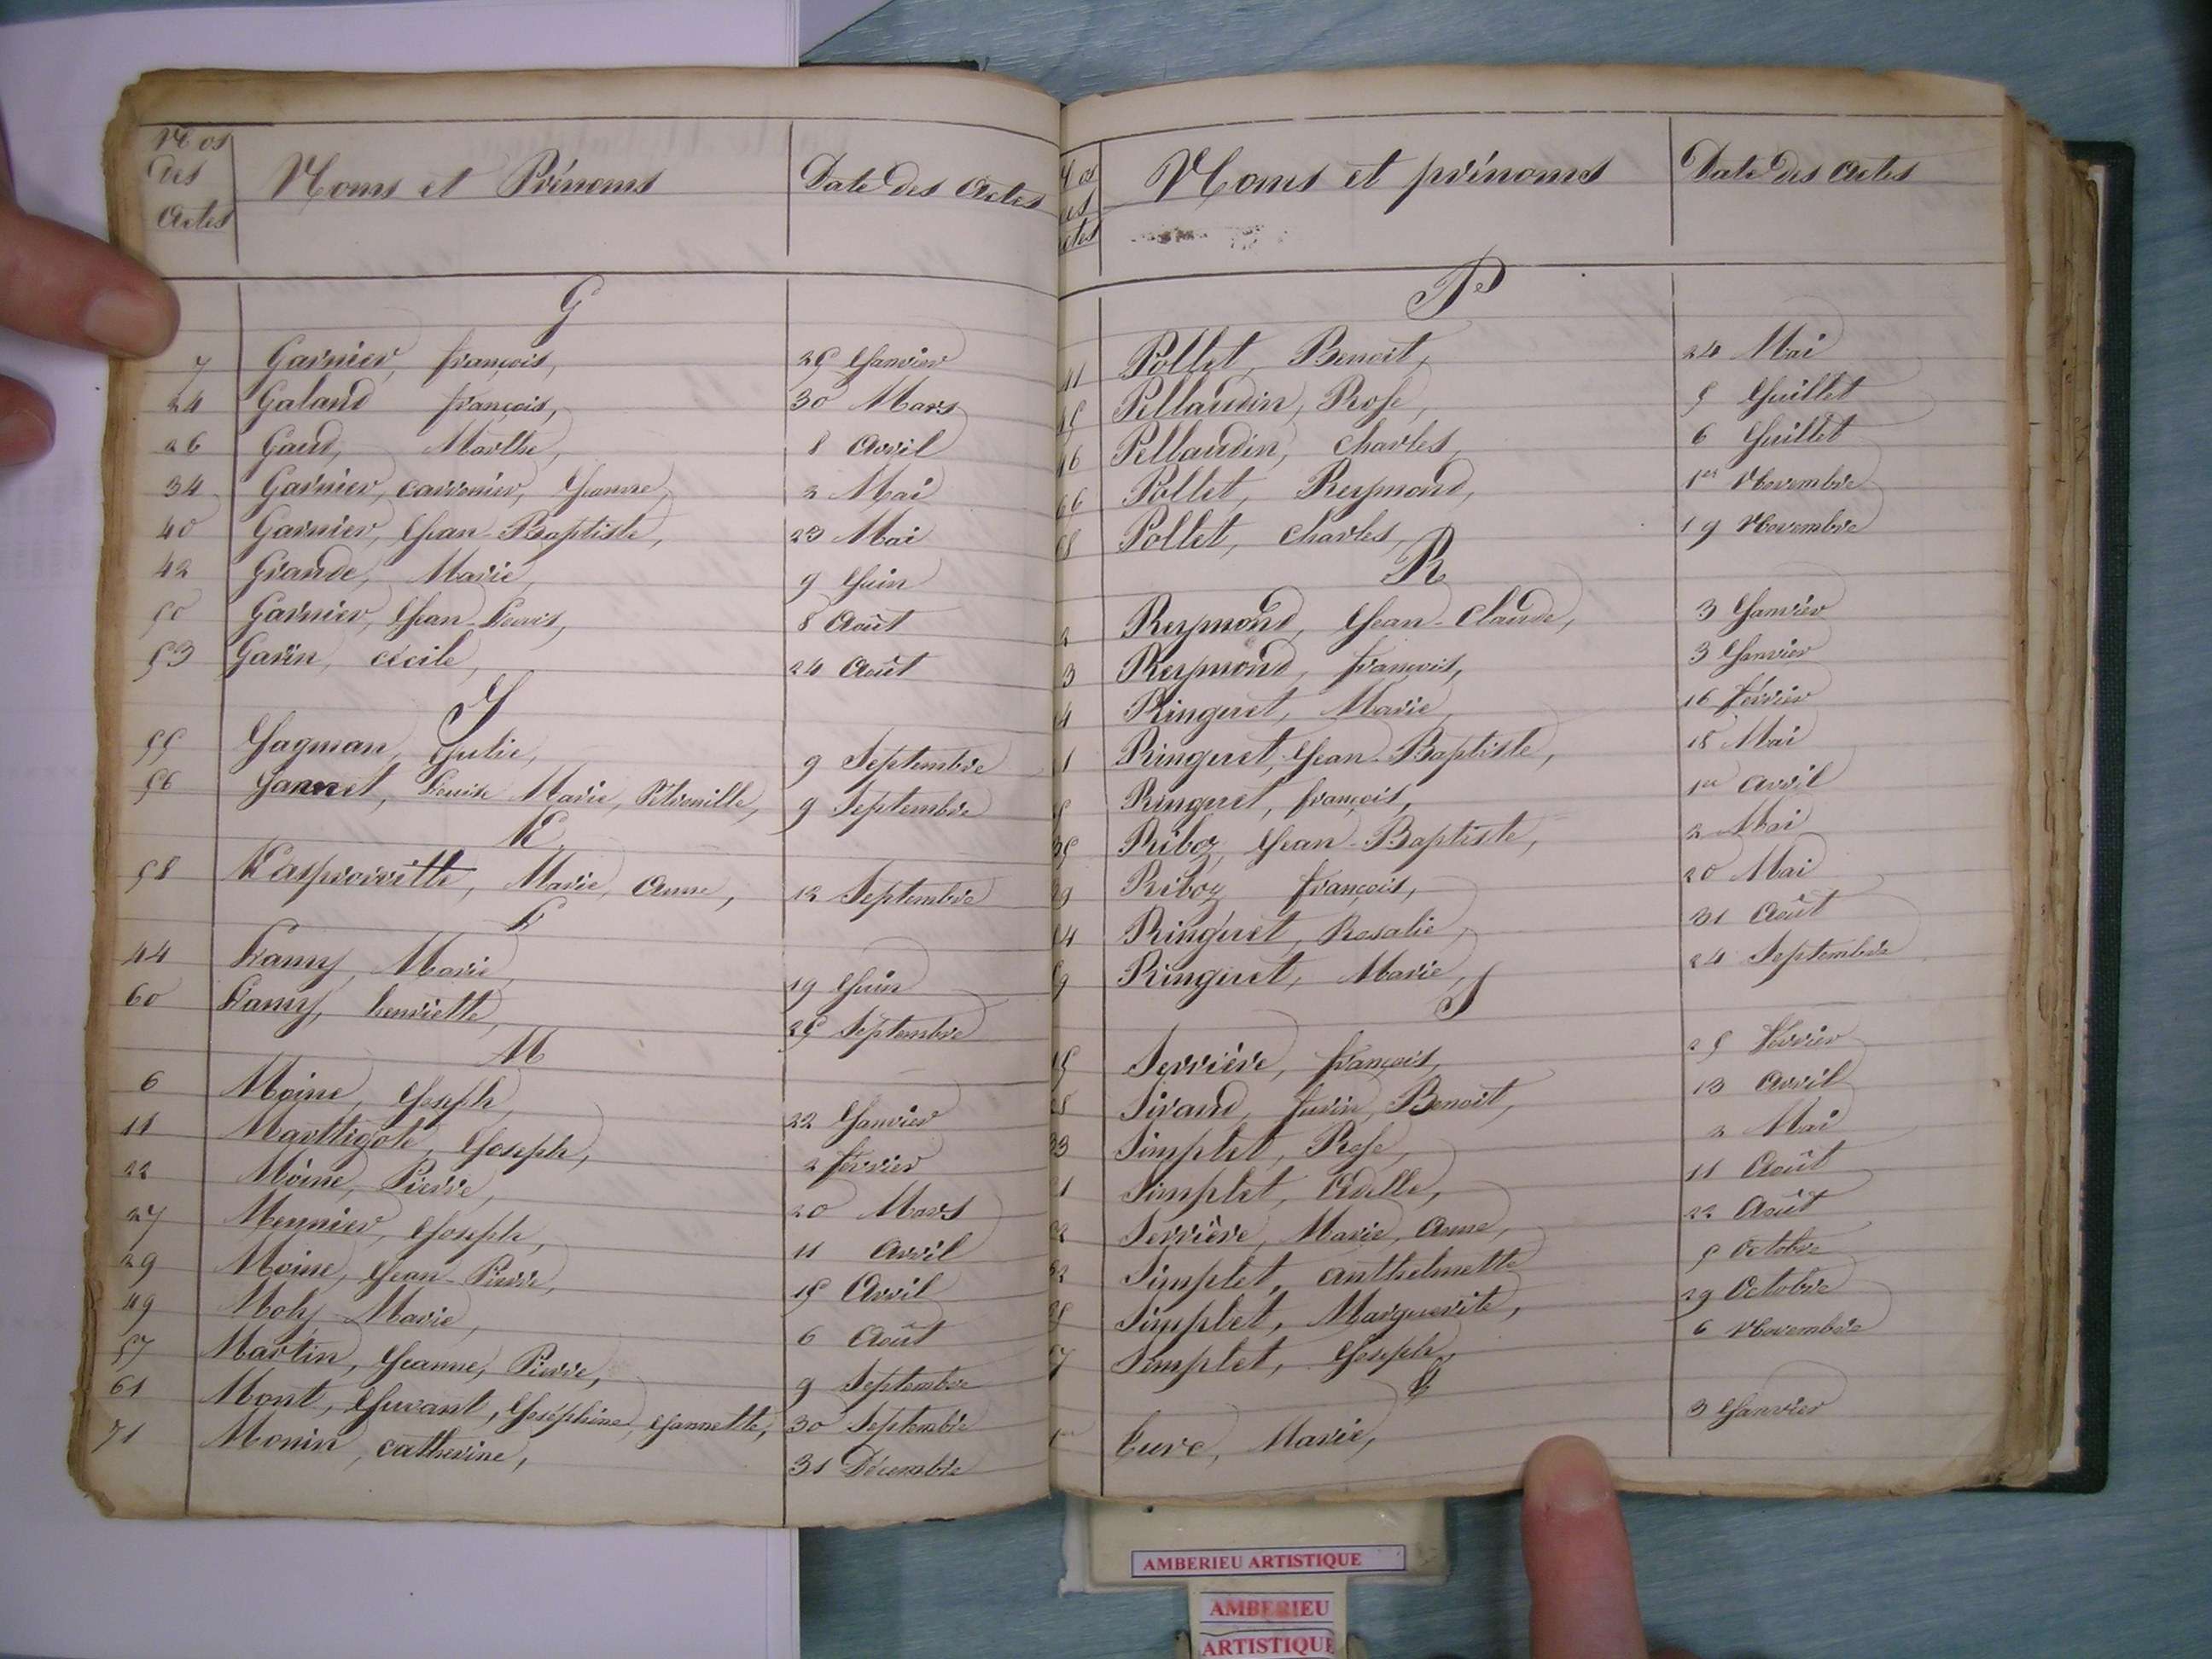 Nos des Actes
Noms et Prénoms
Date des Actes
G
7 Garnier, françois, 25 Janvier
24 Galand françois, 30 Mars
26 Gaud, Marthe, 8 Avril
34 Garnier, carronier, Jeanne, 2 Mai
40 Garnier, Jean-Baptiste, 23 Mai
42 Grande, Marie, 9 Juin
50 Garnier, Jean-Louis, 8 Août
53 Garin, cécile, 24 Août
J
55 Jagman, Julie, 9 Septembre
56 Jannet, Louise Marie, Pétronille, 9 Septembre
K
58 Marie, Anne, 12 Septembre
L
44 Lamy, Marie, 19 Juin
60 Lamy, henriette, 25 Septembre
M
6 Moine, Joseph, 22 Janvier
11 Marttigole, Joseph, 2 février
22 Moine, Pierre, 20 Mars
27 Meynier, Joseph, 11 Avril
29 Moine, Jean-Pierre, 15 Avril
49 Moly, Marie, 6 Août
57 Martin, Jeanne, Pierre, 9 Septembre
61 Mont, Juvant, Joséphine, Jannette, 30 Septembre
71 Monin, catherine, 31 Décembre
os
es
ctes
Noms et prénoms
Date des Actes
P
41 Pollet, Benoit, 24 Mai
45 Pellaudin, Rose, 5 Juillet
46 Pellaudin, Charles, 6 Juillet
66 Pollet, Reymond, 1er Novembre
68 Pollet, Charles, 19 Novembre
R
2 Reymond, Jean-Claude, 3 Janvier
3 Reymond, françois, 3 Janvier
4 Ringuet, Marie, 16 février
1 Ringuet, Jean-Baptiste, 18 Mai
5 Ringuet, françois, 1er Avril
35 Riboz, Jean-Baptiste, 2 Mai
39 Riboz, françois, 20 Mai
54 Ringuet, Rosalie, 31 Août
59 Ringuet, Marie, 24 Septembre
S
15 Serrière, françois, 25 février
28 Sirand, Benoit, 13 Avril
33 Simplet, Rose, 2 Mai
51 Simplet, Adelle, 11 Août
52 Serrière, Marie, Anne, 22 Août
62 Simplet, Anthelmette 5 Octobre
65 Simplet, Marguerite, 29 Octobre
67 Simplet, Joseph, 6 Novembre
1er Marie, 3 Janvier
AMBERIEU ARTISTIQUE
AMBERIEU
ARTISTIQUE